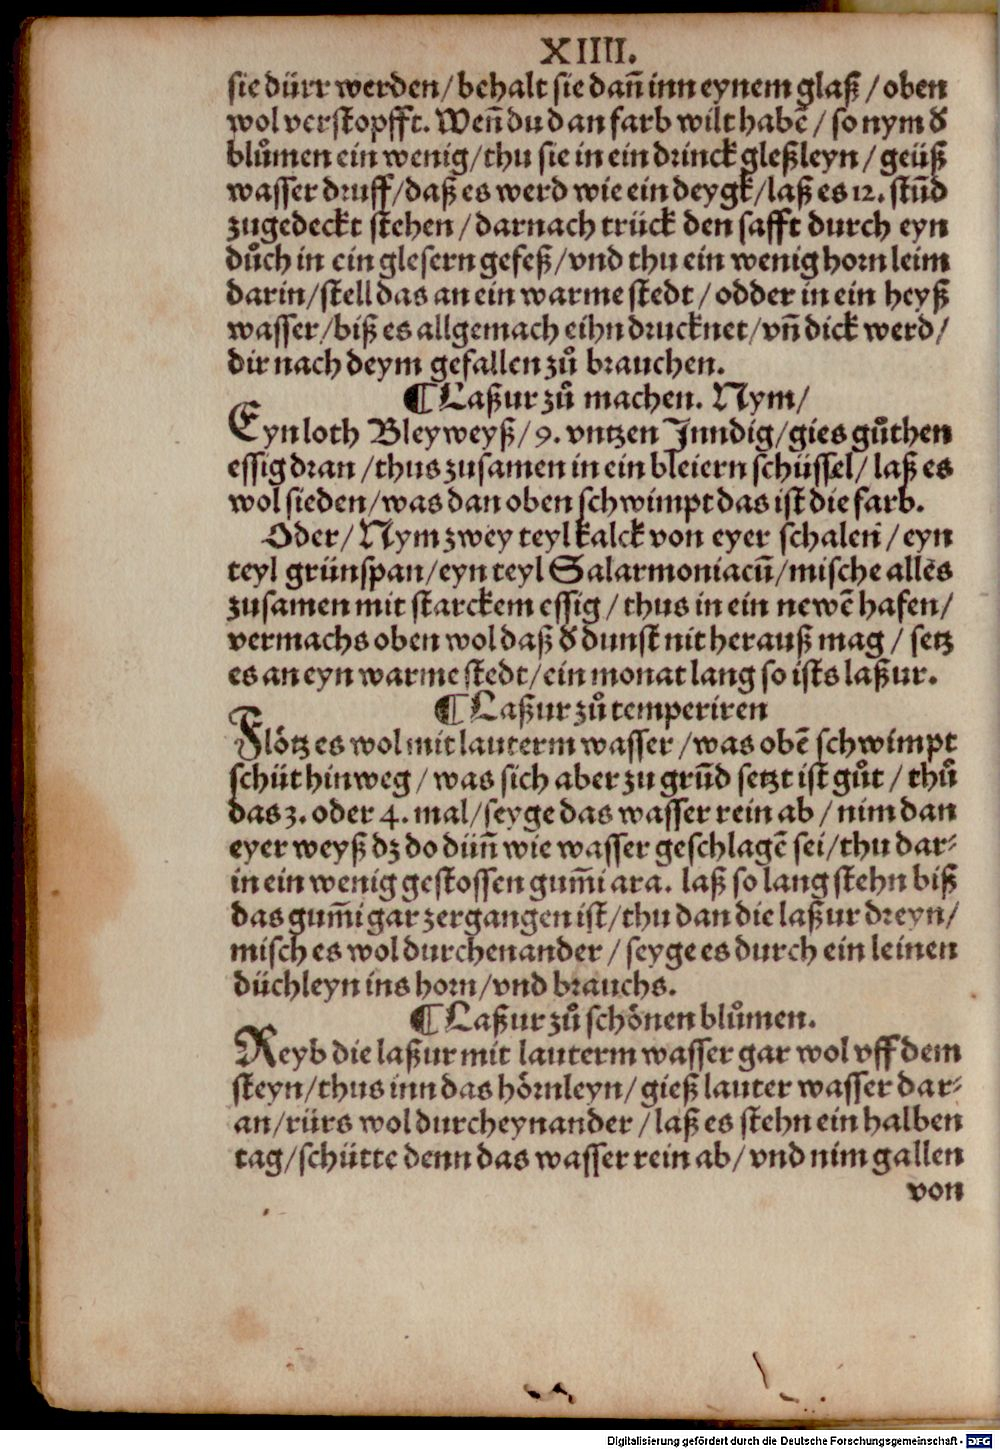 XIIII.
sie dürr werden/behalt sie dañ inn eynem glaß/oben
wol verstopfft. Weñ du dan farb wilt habē/so nym d̕
blůmen ein wenig/thu sie in ein drinck gleßleyn/geüß
wasser druff/daß es werd wie ein deygk/laß es 12. stūd
zugedeckt stehen/darnach trück den safft durch eyn
důch in ein glesern gefeß/vnd thu ein wenig horn leim
darin/stell das an ein warme stedt/odder in ein heyß
wasser/biß es allgemach eihn drucknet/vñ dick werd/
dir nach deym gefallen zů brauchen.
¶ Laßur zů machen. Nym/
Eyn loth Bleyweyß/9. vntzen Jnndig/gies gůthen
essig dran/thus zusamen in ein bleiern schüssel/laß es
wol sieden/was dan oben schwimpt das ist die farb.
Oder/Nym zwey teyl kalck von eyer schalen/eyn
teyl grünspan/eyn teyl Salarmoniacū/mische alles
zusamen mit starckem essig/thus in ein newē hafen/
vermachs oben wol daß d̕ dunst nit herauß mag/setz
es an eyn warme stedt/ein monat lang so ists laßur.
¶ Laßur zů temperiren
Flötz es wol mit lauterm wasser/was obē schwimpt
schüt hinweg/was sich aber zu grūd setzt ist gůt/thů
das 3. oder 4. mal/seyge das wasser rein ab/nim dan
eyer weyß dz do düñ wie wasser geschlagē sei/thu dar-
in ein wenig gestossen gum̄i ara. laß so lang stehn biß
das gum̄i gar zergangen ist/thu dan die laßur dreyn/
misch es wol durchenander/seyge es durch ein leinen
düchleyn ins horn/vnd brauchs.
¶ Laßur zů schönen blůmen.
Reyb die laßur mit lauterm wasser gar wol vff dem
steyn/thus inn das hörnleyn/gieß lauter wasser dar-
an/rürs wol durcheynander/laß es stehn ein halben
tag/schütte denn das wasser rein ab/vnd nim gallen
von
Digitalisierung gefördert durch die Deutsche Forschungsgemeinschaft - DFG